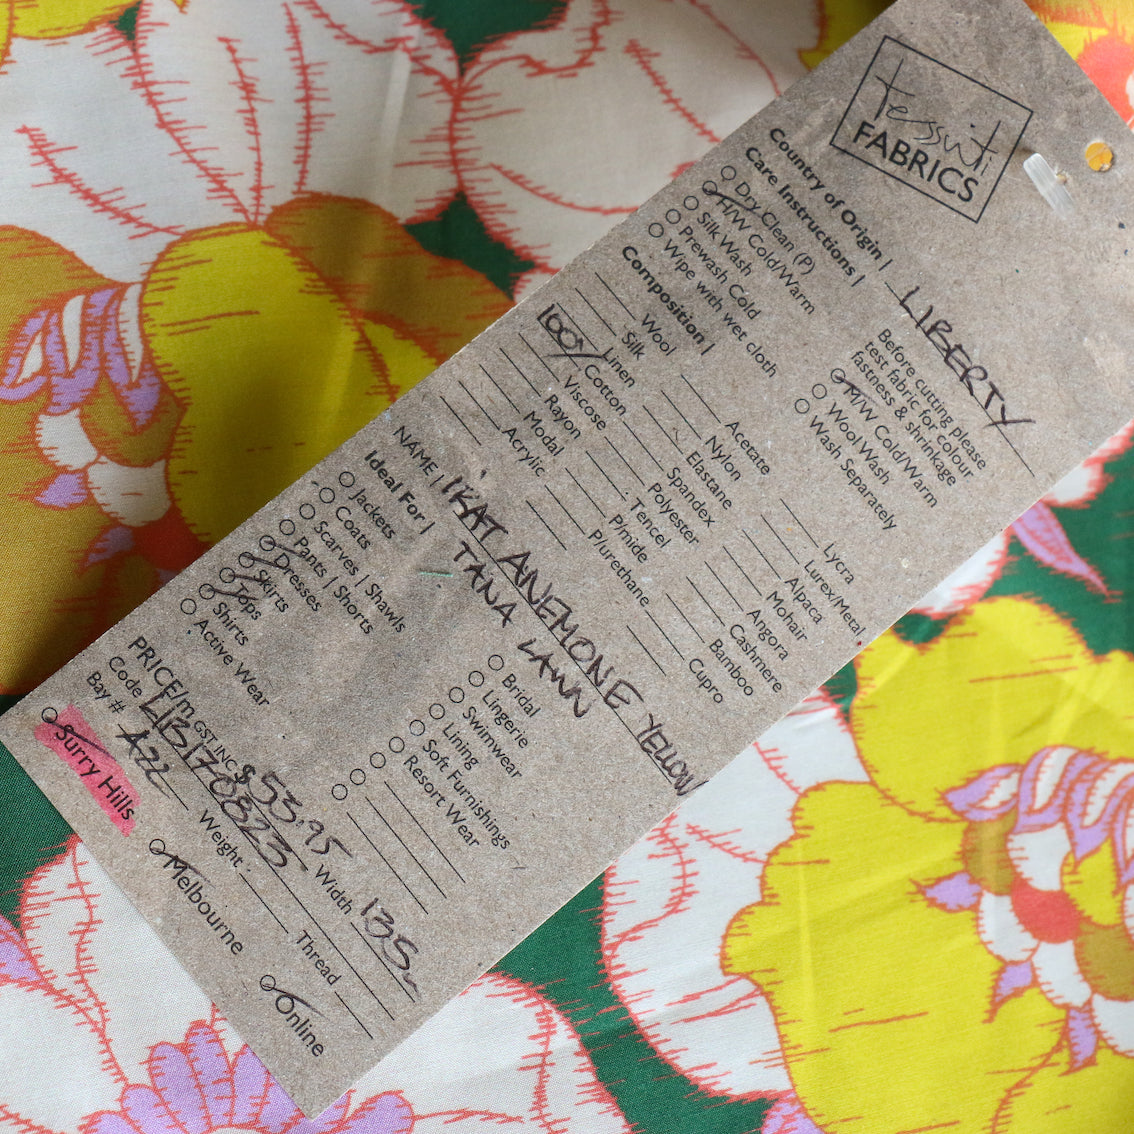 Tessuti
FABRICS
Country of Origin | LIBERTY
Care Instructions |
Dry Clean (P)
H/W Cold/Warm
Silk Wash
Prewash Cold
Wipe with wet cloth
Before cutting please
test fabric for colour
fastness & shrinkage
M/W Cold/Warm
Wool Wash
Wash Separately
Composition |
Wool
Silk
Linen
100% Cotton
Viscose
Rayon
Modal
Acrylic
Acetate
Nylon
Elastane
Spandex
Polyester
Tencel
P/mide
P/urethane
Lycra
Lurex/Metal
Mohair
Alpaca
Angora
Cashmere
Bamboo
Cupro
NAME | IKAT ANEMONE YELLOW
TANA LAWN
Ideal For |
Jackets
Coats
Scarves | Shawls
Pants | Shorts
Dresses
Skirts
Tops
Shirts
Active Wear
Bridal
Lingerie
Swimwear
Lining
Soft Furnishings
Resort Wear
PRICE/m GST INC $ 53.95 Width 135
Code LIB170823 Thread
Bay# A22 Weight
Surry Hills
Melbourne
Online